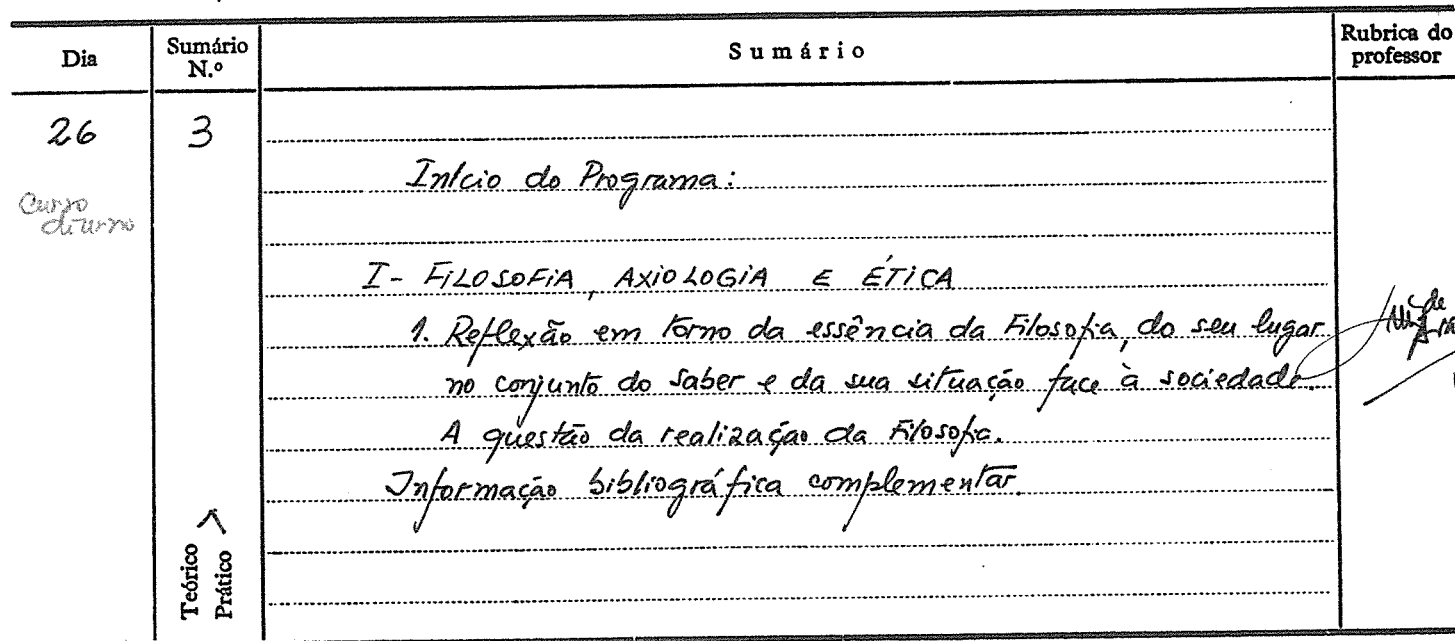 Dia
Sumário N.º
Sumário
Rubrica do professor
26
3
Curso diurno
Início do Programa:
I - FILOSOFIA, AXIOLOGIA E ÉTICA
1. Reflexão em torno da essência da Filosofia, do seu lugar
no conjunto do saber e da sua situação face à sociedade.
A questão da realização da Filosofia.
Informação bibliográfica complementar.
Teórico
Prático